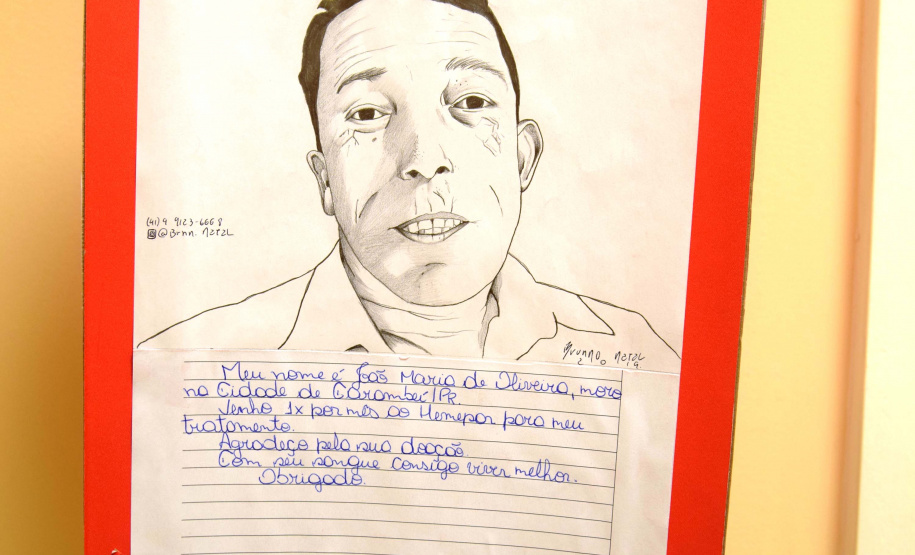 (41) 9 9123-6668
@Brnn.Netzl
Brunno Netzl
2019.
Meu nome é João Maria de Oliveira, moro
na Cidade de Carambeí/PR.
Venho 1x por mês ao Hemepar para meu
tratamento.
Agradeço pela sua doação
Com seu sangue consigo viver melhor.
Obrigado.